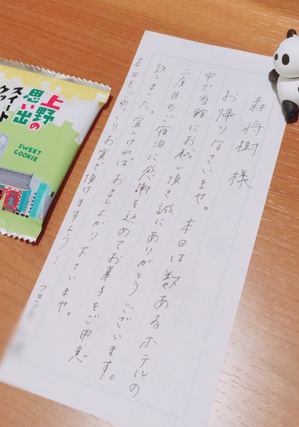 森 将樹 様
お帰りなさいませ。本日は数あるホテルの
中で当館にお越し頂き誠にありがとうございます。
二度目のご宿泊に感謝を込めてお菓子をご用意
致しました。宜しければお召し上がり下さいませ。
本日もごゆっくりお寛ぎ頂けますよう…
フロント
上野の
思い出
スイート
クッキー
SWEET COOKIE